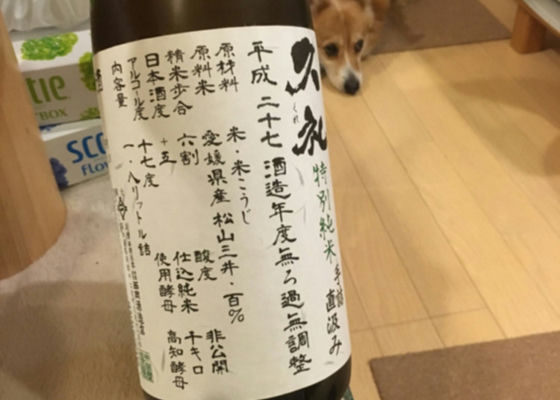 久礼
くれ
特別純米
手詰直汲み
平成二十七酒造年度無ろ過無調整
原材料 米・米こうじ
原料米 愛媛県産松山三井・百%
精米歩合 六割
酸度 非公開
日本酒度 +五
仕込純米 千キロ
アルコール度 十七度
使用酵母 高知酵母
内容量 一・八リットル詰
tie
BOX
SCO
Flow